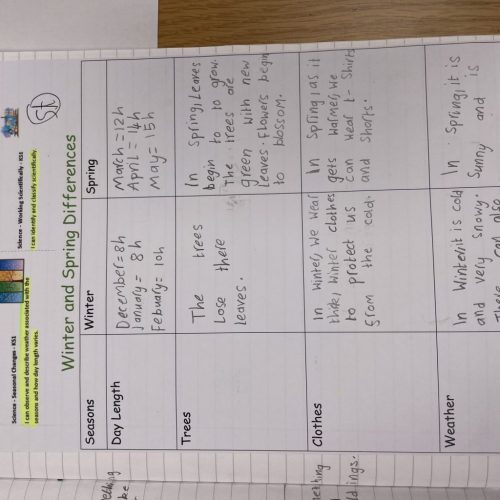 Science - Seasonal Changes - KS1
I can observe and describe weather associated with the
seasons and how day length varies.
Science - Working Scientifically - KS1
I can identify and classify scientifically.
Winter and Spring Differences
Seasons
Winter
Spring
Day Length
December = 8h
January = 8h
Febuary = 10h
March = 12h
April = 14h
May = 15h
Trees
The trees
Lose there
leaves.
In spring, Leaves
begin to to grow.
The trees are
green with new
leaves. Flowers begin
to blossom.
Clothes
In Winter, We Wear
thick Winter clothes
to protect us
from the cold.
In Spring, as it
gets warmer, We
can wear t-Shirts
and Shorts.
Weather
In Winter, it is cold
and very snowy.
There can also
In Spring, it is
Sunny and is